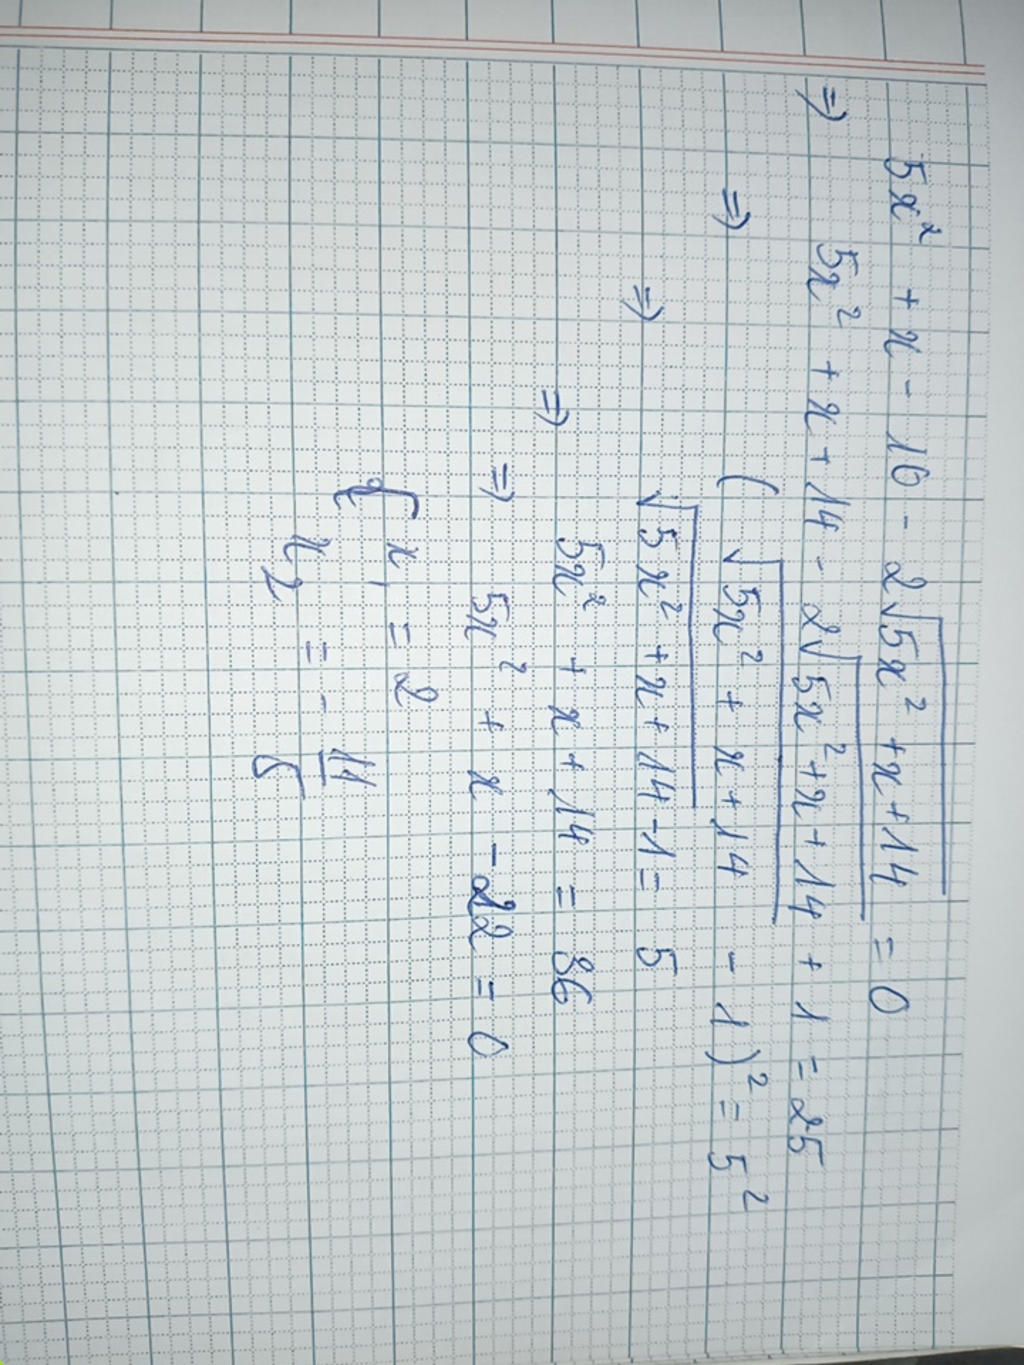 5x² + x - 10 - 2√(5x² + x + 14) = 0
⇒ 5x² + x + 14 - 2√(5x² + x + 14) + 1 = 25
⇒ (√(5x² + x + 14) - 1)² = 5²
⇒ √(5x² + x + 14) - 1 = 5
⇒ 5x² + x + 14 = 36
⇒ 5x² + x - 22 = 0
x₁ = 2
x₂ = - 11/5